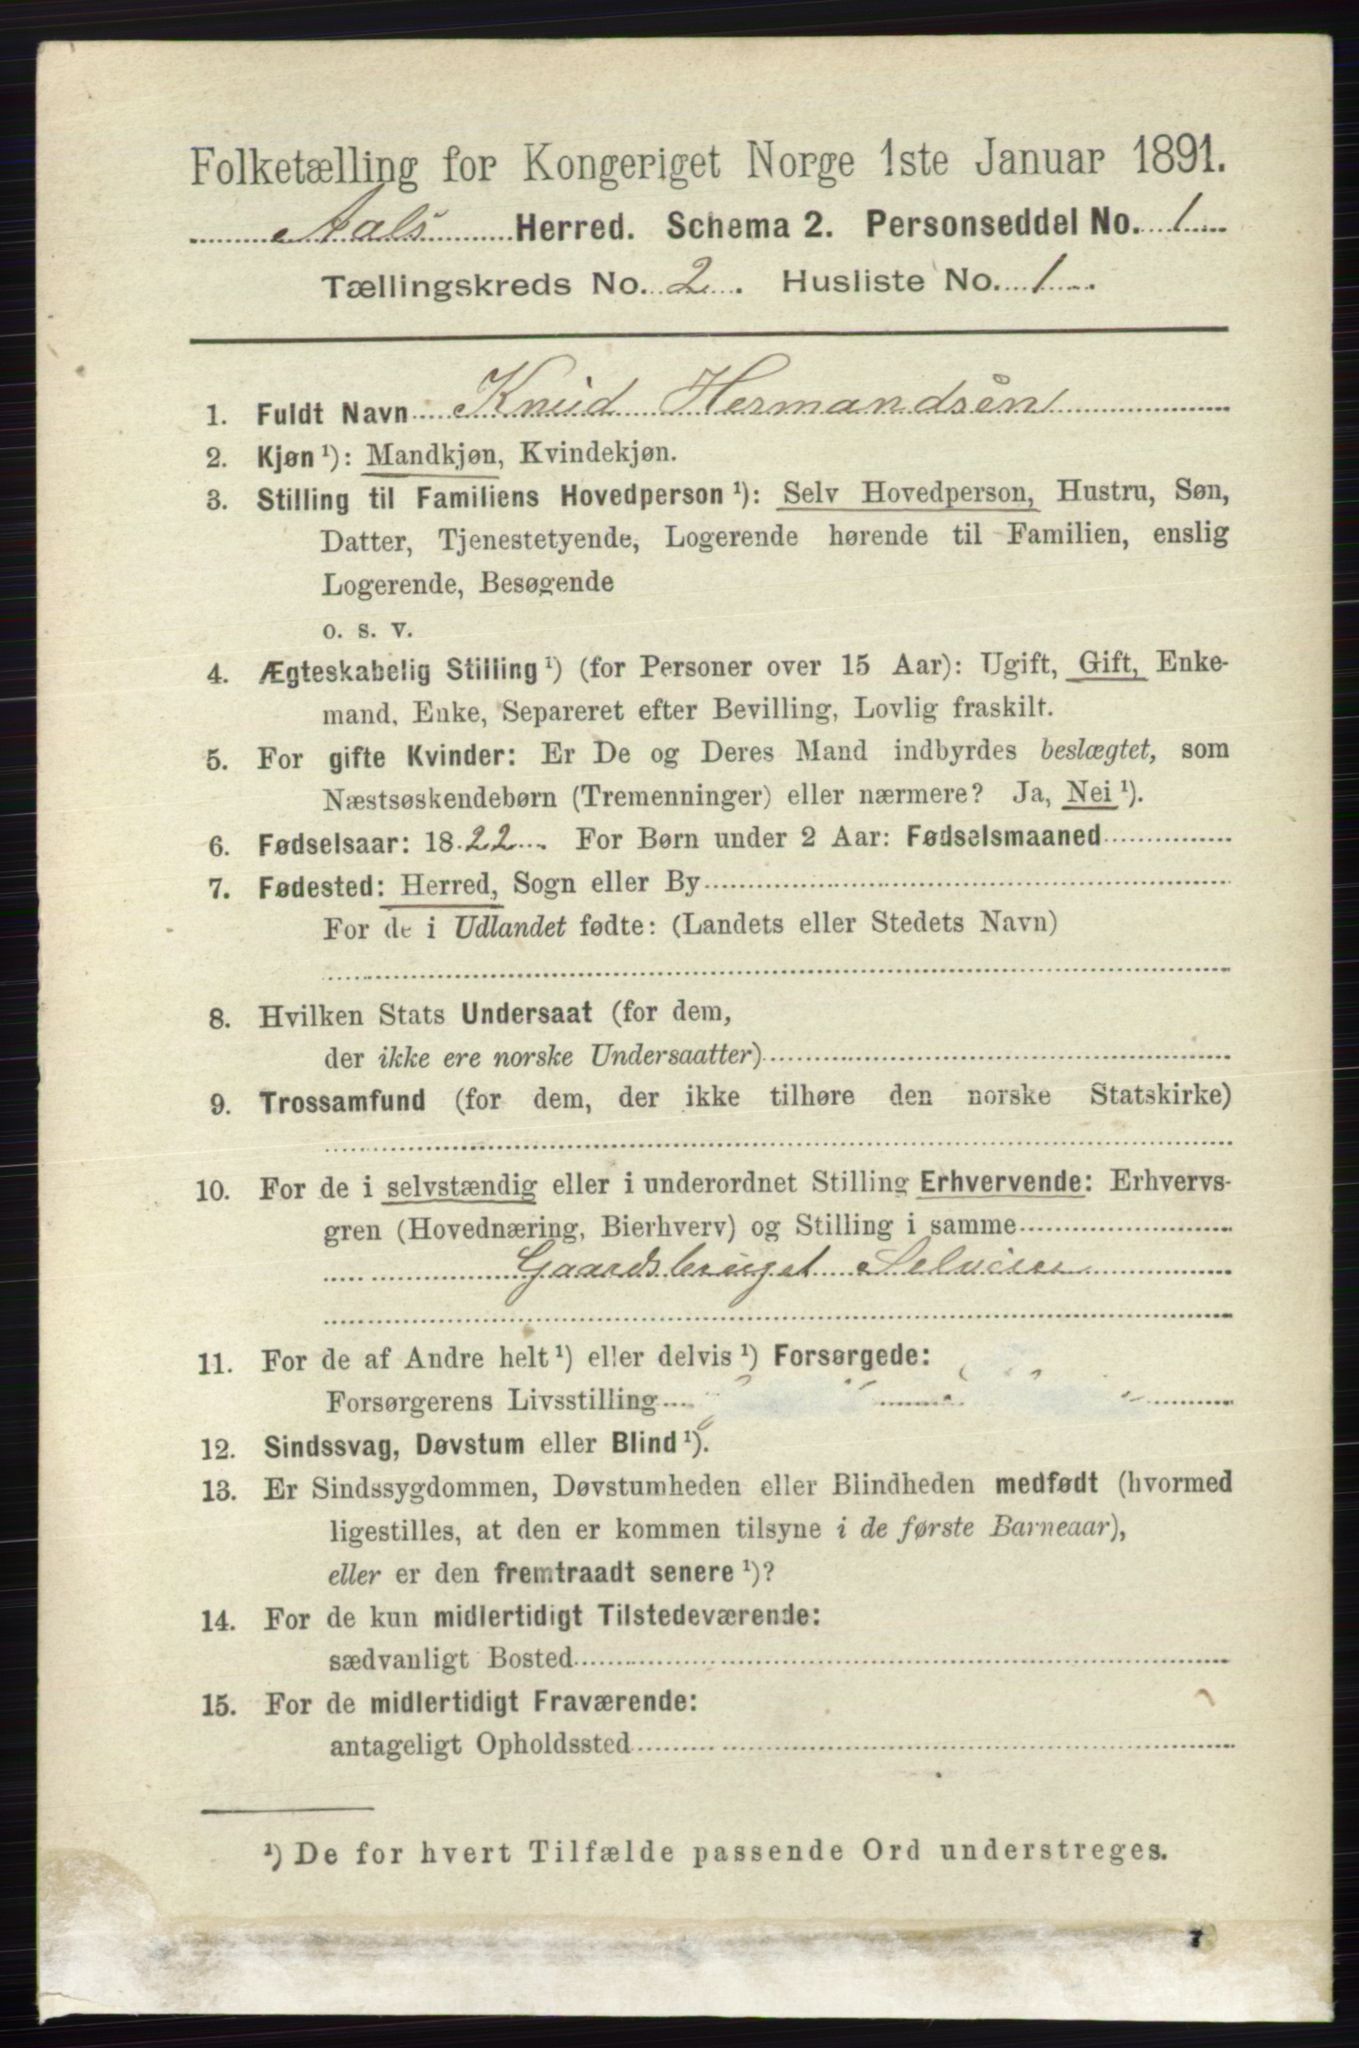 Folketælling for Kongeriget Norge 1ste Januar 1891.
Aals Herred. Schema 2. Personseddel No. 1
Tællingskreds No. 2. Husliste No. 1
1. Fuldt Navn Knud Hermandsen
2. Kjøn ¹): Mandkjøn, Kvindekjøn.
3. Stilling til Familiens Hovedperson ¹): Selv Hovedperson, Hustru, Søn,
Datter, Tjenestetyende, Logerende hørende til Familien, enslig
Logerende, Besøgende
o. s. v.
4. Ægteskabelig Stilling ¹) (for Personer over 15 Aar): Ugift, Gift, Enke-
mand, Enke, Separeret efter Bevilling, Lovlig fraskilt.
5. For gifte Kvinder: Er De og Deres Mand indbyrdes beslægtet, som
Næstsøskendebørn (Tremenninger) eller nærmere? Ja, Nei ¹).
6. Fødselsaar: 1822. For Børn under 2 Aar: Fødselsmaaned
7. Fødested: Herred, Sogn eller By
For de i Udlandet fødte: (Landets eller Stedets Navn)
8. Hvilken Stats Undersaat (for dem,
der ikke ere norske Undersaatter)
9. Trossamfund (for dem, der ikke tilhøre den norske Statskirke)
10. For de i selvstændig eller i underordnet Stilling Erhvervende: Erhvervs-
gren (Hovednæring, Bierhverv) og Stilling i samme
Gaardsbruget Selveier
11. For de af Andre helt ¹) eller delvis ¹) Forsørgede:
Forsørgerens Livsstilling
12. Sindssvag, Døvstum eller Blind ¹).
13. Er Sindssygdommen, Døvstumheden eller Blindheden medfødt (hvormed
ligestilles, at den er kommen tilsyne i de første Barneaar),
eller er den fremtraadt senere ¹)?
14. For de kun midlertidigt Tilstedeværende:
sædvanligt Bosted
15. For de midlertidigt Fraværende:
antageligt Opholdssted
¹) De for hvert Tilfælde passende Ord understreges.